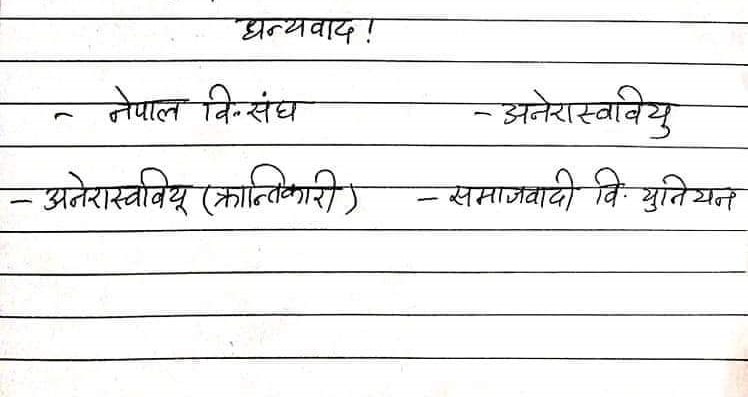 धन्यवाद !
- नेपाल वि.संघ - अनेरास्ववियु
- अनेरास्ववियू (क्रान्तिकारी) - समाजवादी वि. युनियन